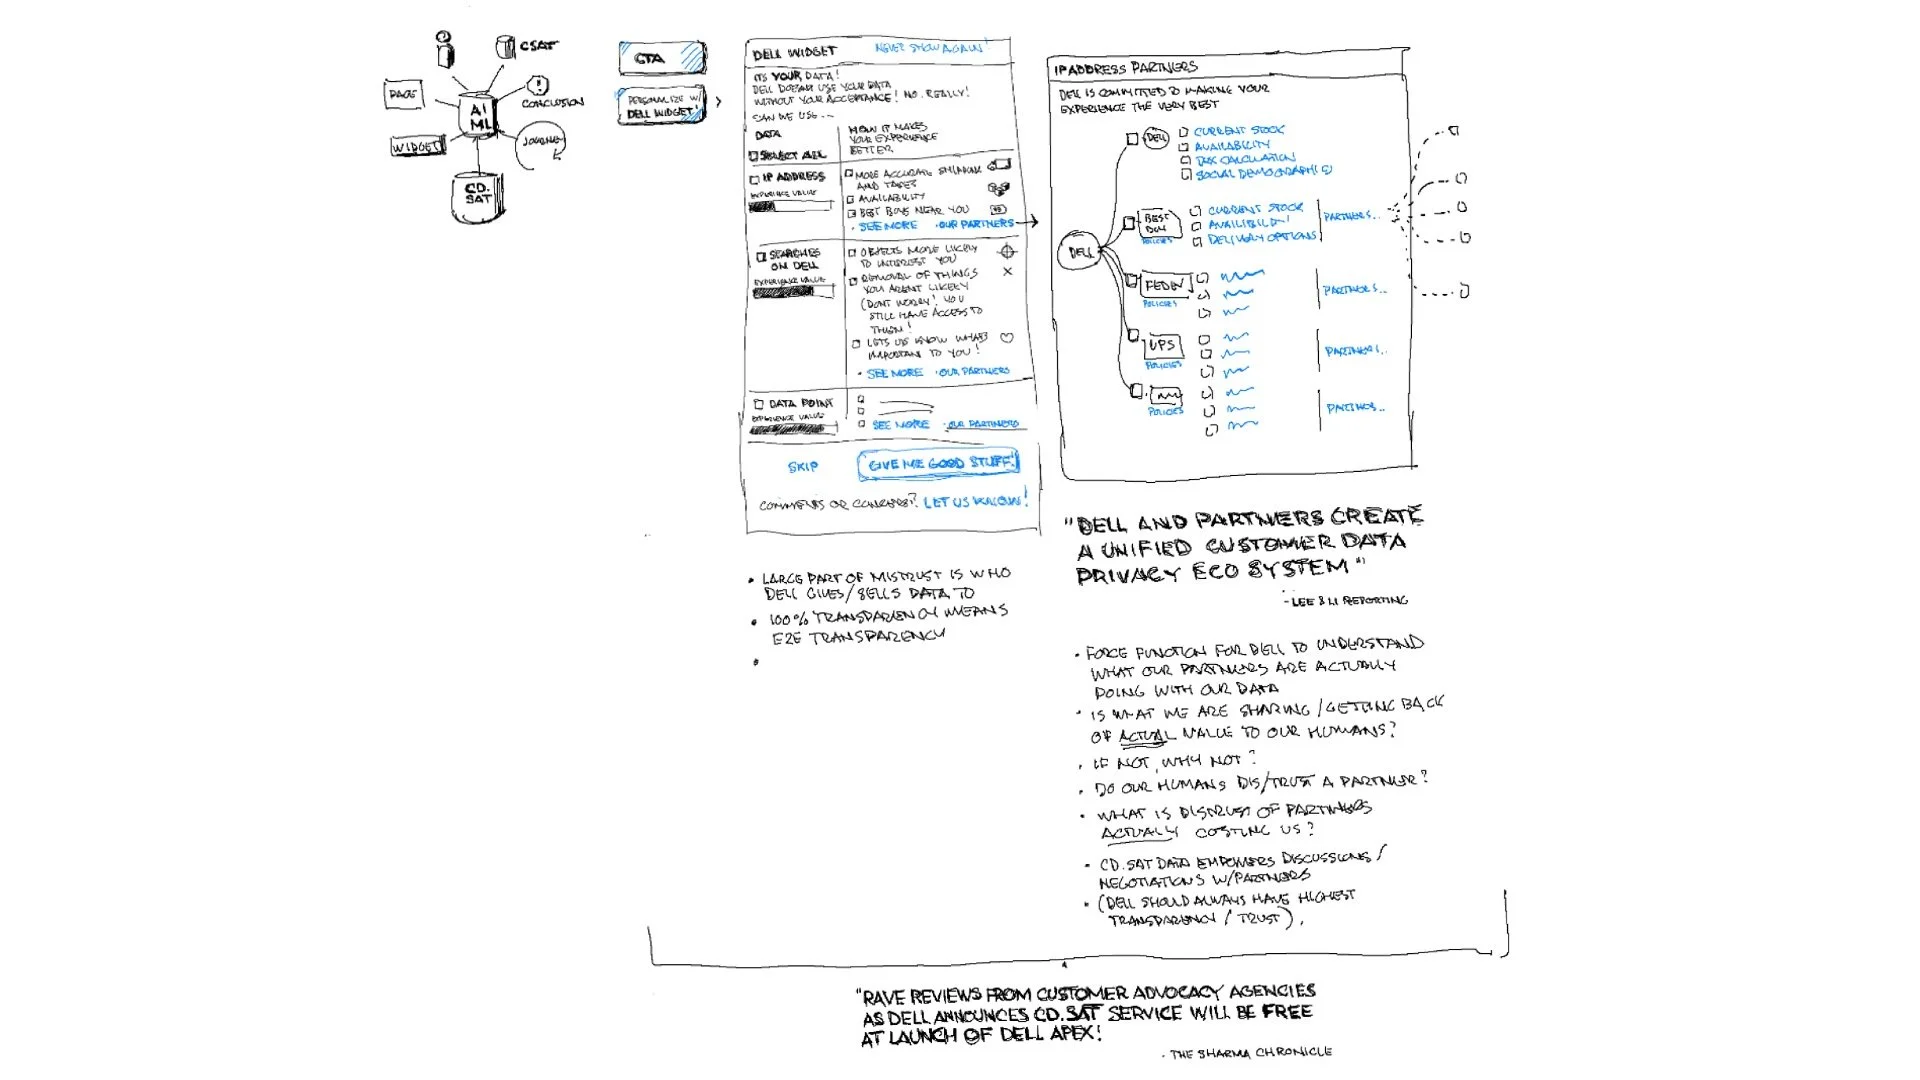 CSAT
PAGE
AI
ML
CONCLUSION
WIDGET
JOURNEY
CD.
SAT
CTA
PERSONALIZE W/
DELL WIDGET!
DELL WIDGET
NEVER SHOW AGAIN!
ITS YOUR DATA!
DELL DOESNT USE YOUR DATA
WITHOUT YOUR ACCEPTANCE! NO. REALLY!
CAN WE USE...
DATA
HOW IT MAKES
YOUR EXPERIENCE
BETTER
SELECT ALL
IP ADDRESS
EXPERIENCE VALUE
MORE ACCURATE SHIPPING
AND TAXES
AVAILABILITY
BEST BUYS NEAR YOU
• SEE MORE • OUR PARTNERS
SEARCHES
ON DELL
EXPERIENCE VALUE
OBJECTS MORE LIKELY
TO INTEREST YOU
REMOVAL OF THINGS
YOU ARENT LIKELY
(DONT WORRY! YOU
STILL HAVE ACCESS TO
THEM!
LETS US KNOW WHATS
IMPORTANT TO YOU!
• SEE MORE • OUR PARTNERS
DATA POINT
EXPERIENCE VALUE
SEE MORE • OUR PARTNERS
SKIP
GIVE ME GOOD STUFF!
COMMENTS OR CONCERNS? LET US KNOW!
• LARGE PART OF MISTRUST IS WHO
DELL GIVES/SELLS DATA TO
• 100% TRANSPARENCY MEANS
E2E TRANSPARENCY
•
IP ADDRESS PARTNERS
DELL IS COMMITTED TO MAKING YOUR
EXPERIENCE THE VERY BEST
DELL
DELL
CURRENT STOCK
AVAILABILITY
TAX CALCULATION
SOCIAL DEMOGRAPHIC
BEST
BUY
POLICIES
CURRENT STOCK
AVAILIBILITY
DELIVERY OPTIONS
PARTNERS..
FEDEX
POLICIES
PARTNERS..
UPS
POLICIES
PARTNERS..
POLICIES
PARTNERS..
"DELL AND PARTNERS CREATE
A UNIFIED CUSTOMER DATA
PRIVACY ECO SYSTEM"
REPORTING
• FORCE FUNCTION FOR DELL TO UNDERSTAND
WHAT OUR PARTNERS ARE ACTUALLY
DOING WITH OUR DATA
• IS WHAT WE ARE SHARING/GETTING BACK
OF ACTUAL VALUE TO OUR HUMANS?
• IF NOT, WHY NOT?
• DO OUR HUMANS DIS/TRUST A PARTNER?
• WHAT IS DISTRUST OF PARTNERS
ACTUALLY COSTING US?
• CD.SAT DATA EMPOWERS DISCUSSIONS/
NEGOTIATIONS W/PARTNERS
• (DELL SHOULD ALWAYS HAVE HIGHEST
TRANSPARENCY / TRUST).
"RAVE REVIEWS FROM CUSTOMER ADVOCACY AGENCIES
AS DELL ANNOUNCES CD.SAT SERVICE WILL BE FREE
AT LAUNCH OF DELL APEX!
- THE SHARMA CHRONICLE